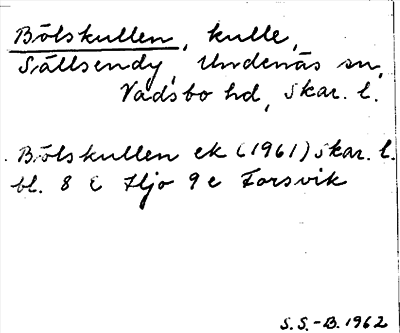 Bölskullen, kulle,
Sällsendy, Undenäs sn,
Vadsbo hd, Skar. l.
Bölskullen ek (1961) Skar. l.
bl. 8 E Hjo 9 e Forsvik
S.S.-B. 1962